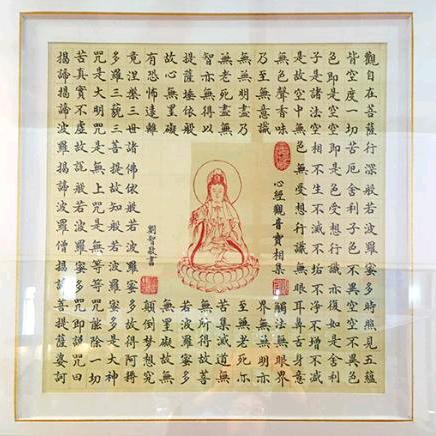 觀自在菩薩行深般若波羅蜜多時照見五蘊
皆空度一切苦厄舍利子色不異空空不異色
色即是空空即是色受想行識亦復如是舍利
子是諸法空相不生不滅不垢不淨不增不減
是故空中無色無受想行識無眼耳鼻舌身意
無色聲香味觸法無眼界
乃至無意識界無無明亦
無無明盡乃至無老死亦
無老死盡無苦集滅道無
智亦無得以無所得故菩
提薩埵依般若波羅蜜多
故心無罣礙無罣礙故無
有恐怖遠離顛倒夢想究
竟涅槃三世諸佛依般若波羅蜜多故得阿耨
多羅三藐三菩提故知般若波羅蜜多是大神
咒是大明咒是無上咒是無等等咒能除一切
苦真實不虛故說般若波羅蜜多咒即說咒曰
揭諦揭諦波羅揭諦波羅僧揭諦菩提薩婆訶
心經觀音寶相集
劉智書